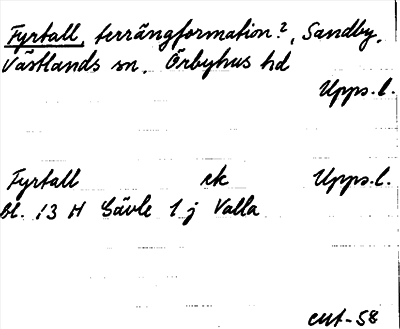 Fyrtall, terrängformation?, Sandby,
Västlands sn, Örbyhus hd
Upps.l.
Fyrtall rk Upps.l.
Bl. 13 H Gävle 1 j Valla